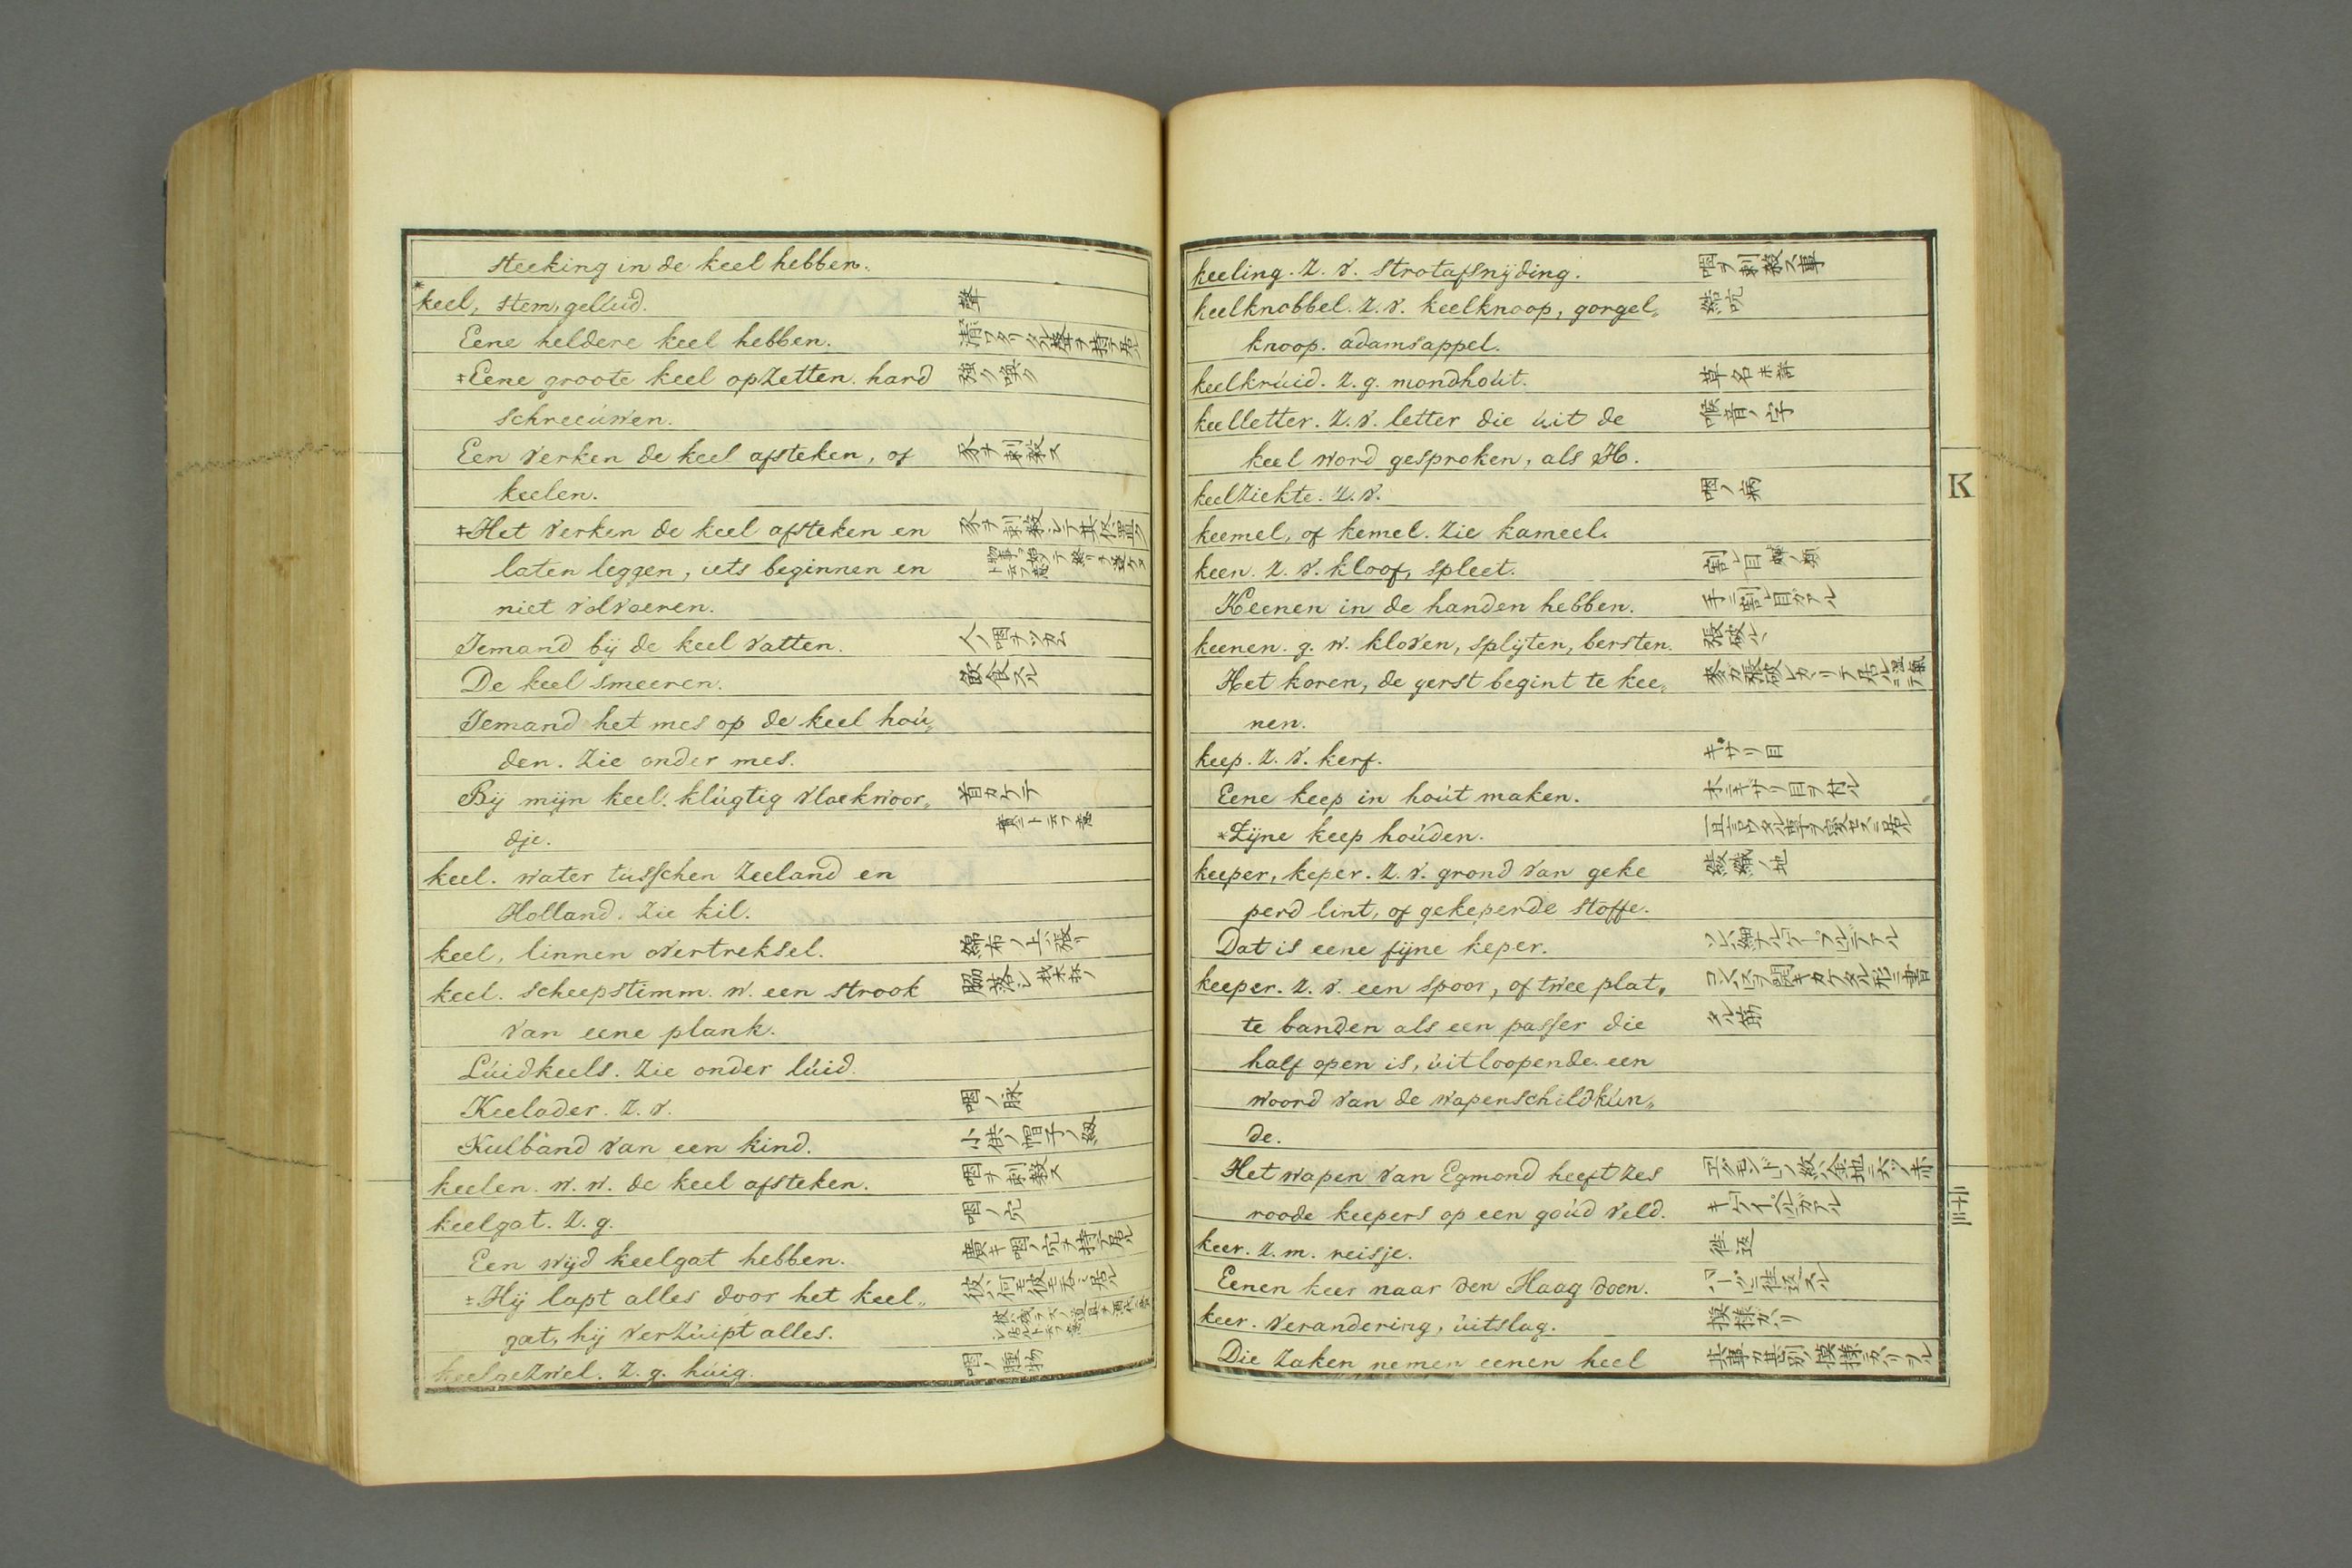 steeking in de keel hebben.
*keel, stem, gelúid. 聲
Eene heldere keel hebben.
‡Eene groote keel opzetten. hard 強ク喚ク
schreeúwen.
Een verken de keel afsteken, of 豕ヲ刺殺ス
keelen.
‡Het verken de keel afsteken en 豕ヲ刺殺シテ其侭置ク
laten leggen, iets beginnen en
niet volvoeren.
Iemand bij de keel vatten. 人ノ咽ヲツカム
De keel smeeren. 飲食スル
Iemand het mes op de keel hoú„
den. Zie onder mes.
Bij mijn keel. klúgtig vloekwoor„ 首カケテ
dje.
keel. water tússchen Zeeland en
Holland. Zie kil.
keel, linnen overtreksel. 綿布ノ上張リ
keel. scheepstimm. w. een strook
van eene plank.
Lúidkeels. Zie onder lúid.
Keelader. z. v. 咽ノ脉
Kulband van een kind. 小供ノ帽子ノ紐
keelen. w. w. de keel afsteken. 咽ヲ刺殺ス
keelgat. z. g. 咽ノ穴
Een wijd keelgat hebben. 廣キ咽ノ穴ヲ持テ居ル
‡Hij lapt alles door het keel„ 彼ハ何モ彼モ呑ミ居ル
gat, hij verzúipt alles.
keelgezwel. z. g. húig. 咽ノ腫物
keeling. z. v. strotafsnijding. 咽ヲ刺殺ス事
keelknobbel. z. v. keelknoop, gorgel„ 結吭
knoop. adamsappel.
keelkrúid. z. g. mondhoút. 草名
keelletter. z. v. letter die úit de 喉音ノ字
keel word gesproken, als H.
keelziekte. z. v. 咽ノ病
keemel, of kemel. Zie kameel.
keen. z. v. kloof, spleet. 割レ目
Keenen in de handen hebben. 手ニ割レ目ガアル
keenen. g. w. kloven, splijten, bersten. 張破ル
Het koren, de gerst begint te kee„
nen.
keep. z. v. kerf. キザリ目
Eene keep in hoút maken. 木ニキザリ目ヲ付ル
*Zijne keep hoúden.
keeper, keper. z. v. grond van geke 綾織ノ地
perd lint, of gekeperde stoffe.
Dat is eene fijne keper.
keeper. z. v. een spoor, of twee plat„ コンパスヲ開キカケタル形ニ書
te banden als een passer die タル筋
half open is, úitloopende. een
woord van de wapenschildkún„
de.
Het wapen van Egmond heeft zes エグモンドノ紋ハ金地ニ六ツノ赤
roode keepers op een goúd veld. キケイペルガアル
keer. z. m. reisje. 徃返
Eenen keer naar den Haag doen.
keer. verandering, úitslag. 摸様ガハリ
Die zaken nemen eenen heel
K